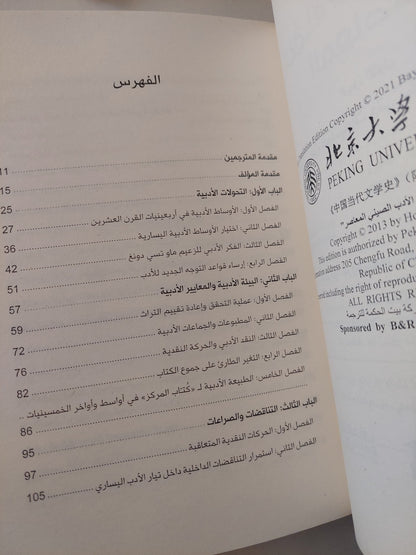 الفهرس
مقدمة المترجمين 11
مقدمة المؤلف 15
الباب الأول: التحولات الأدبية 25
الفصل الأول: الأوساط الأدبية في أربعينيات القرن العشرين 27
الفصل الثاني: اختيار الأوساط الأدبية اليسارية 36
الفصل الثالث: الفكر الأدبي للزعيم ماو تسي دونغ 42
الفصل الرابع: إرساء قواعد التوجه الجديد للأدب 51
الباب الثاني: البيئة الأدبية والمعايير الأدبية 57
الفصل الأول: عملية التحقق وإعادة تقييم التراث 59
الفصل الثاني: المطبوعات والجماعات الأدبية 72
الفصل الثالث: النقد الأدبي والحركة النقدية 76
الفصل الرابع: التغير الطارئ على جموع الكتاب 82
الفصل الخامس: الطبيعة الأدبية لـ «كُتاب المركز» في أواسط وأواخر الخمسينيات
86
الباب الثالث: التناقضات والصراعات 95
الفصل الأول: الحركات النقدية المتعاقبة 97
الفصل الثاني: استمرار التناقضات الداخلية داخل تيار الأدب اليساري 105
Edition Copyright © 2021 Bay
北京大学
PEKING UNIVER
《中国当代文学史》
الأدب الصيني المعاصر"
Copyright © 2013 by H
This edition is authorized by Pek
205 Chengfu Road,
Republic of C
including the right of reprodu
ALL RIGHTS R
كة بيت الحكمة للترجمة
Sponsored by B&R